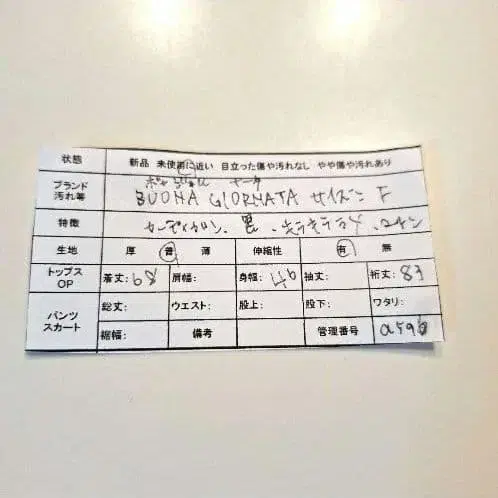 状態 新品 未使用に近い 目立った傷や汚れなし やや傷や汚れあり
ブランド
汚れ等
BUONA GIORNATA サイズ F
特徴 カーディガン、黒、キラキララメ
生地 厚 普 薄 伸縮性 有 無
トップス
OP
着丈: 68 肩幅: 身幅: 46 袖丈: 裄丈: 83
パンツ
スカート
総丈: ウエスト: 股上: 股下: ワタリ:
裾幅: 備考 管理番号